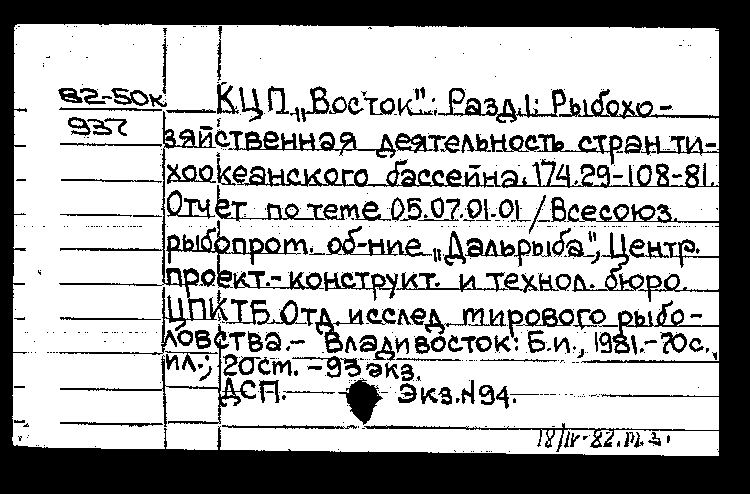 82-50к
937
КЦП „Восток": Разд.1: Рыбохо-
зяйственная деятельность стран ти-
хоокеанского бассейна. 174.29-108-81.
Отчет по теме 05.07.01.01 / Всесоюз.
рыбопром. об-ние „Дальрыба", Центр.
проект.-конструкт. и технол. бюро.
ЦПКТБ. Отд. исслед. мирового рыбо-
ловства.- Владивосток: Б.и., 1981.-70с.,
ил.; 20ст. -93 экз.
ДСП. Экз.N94.
18/IV-82.